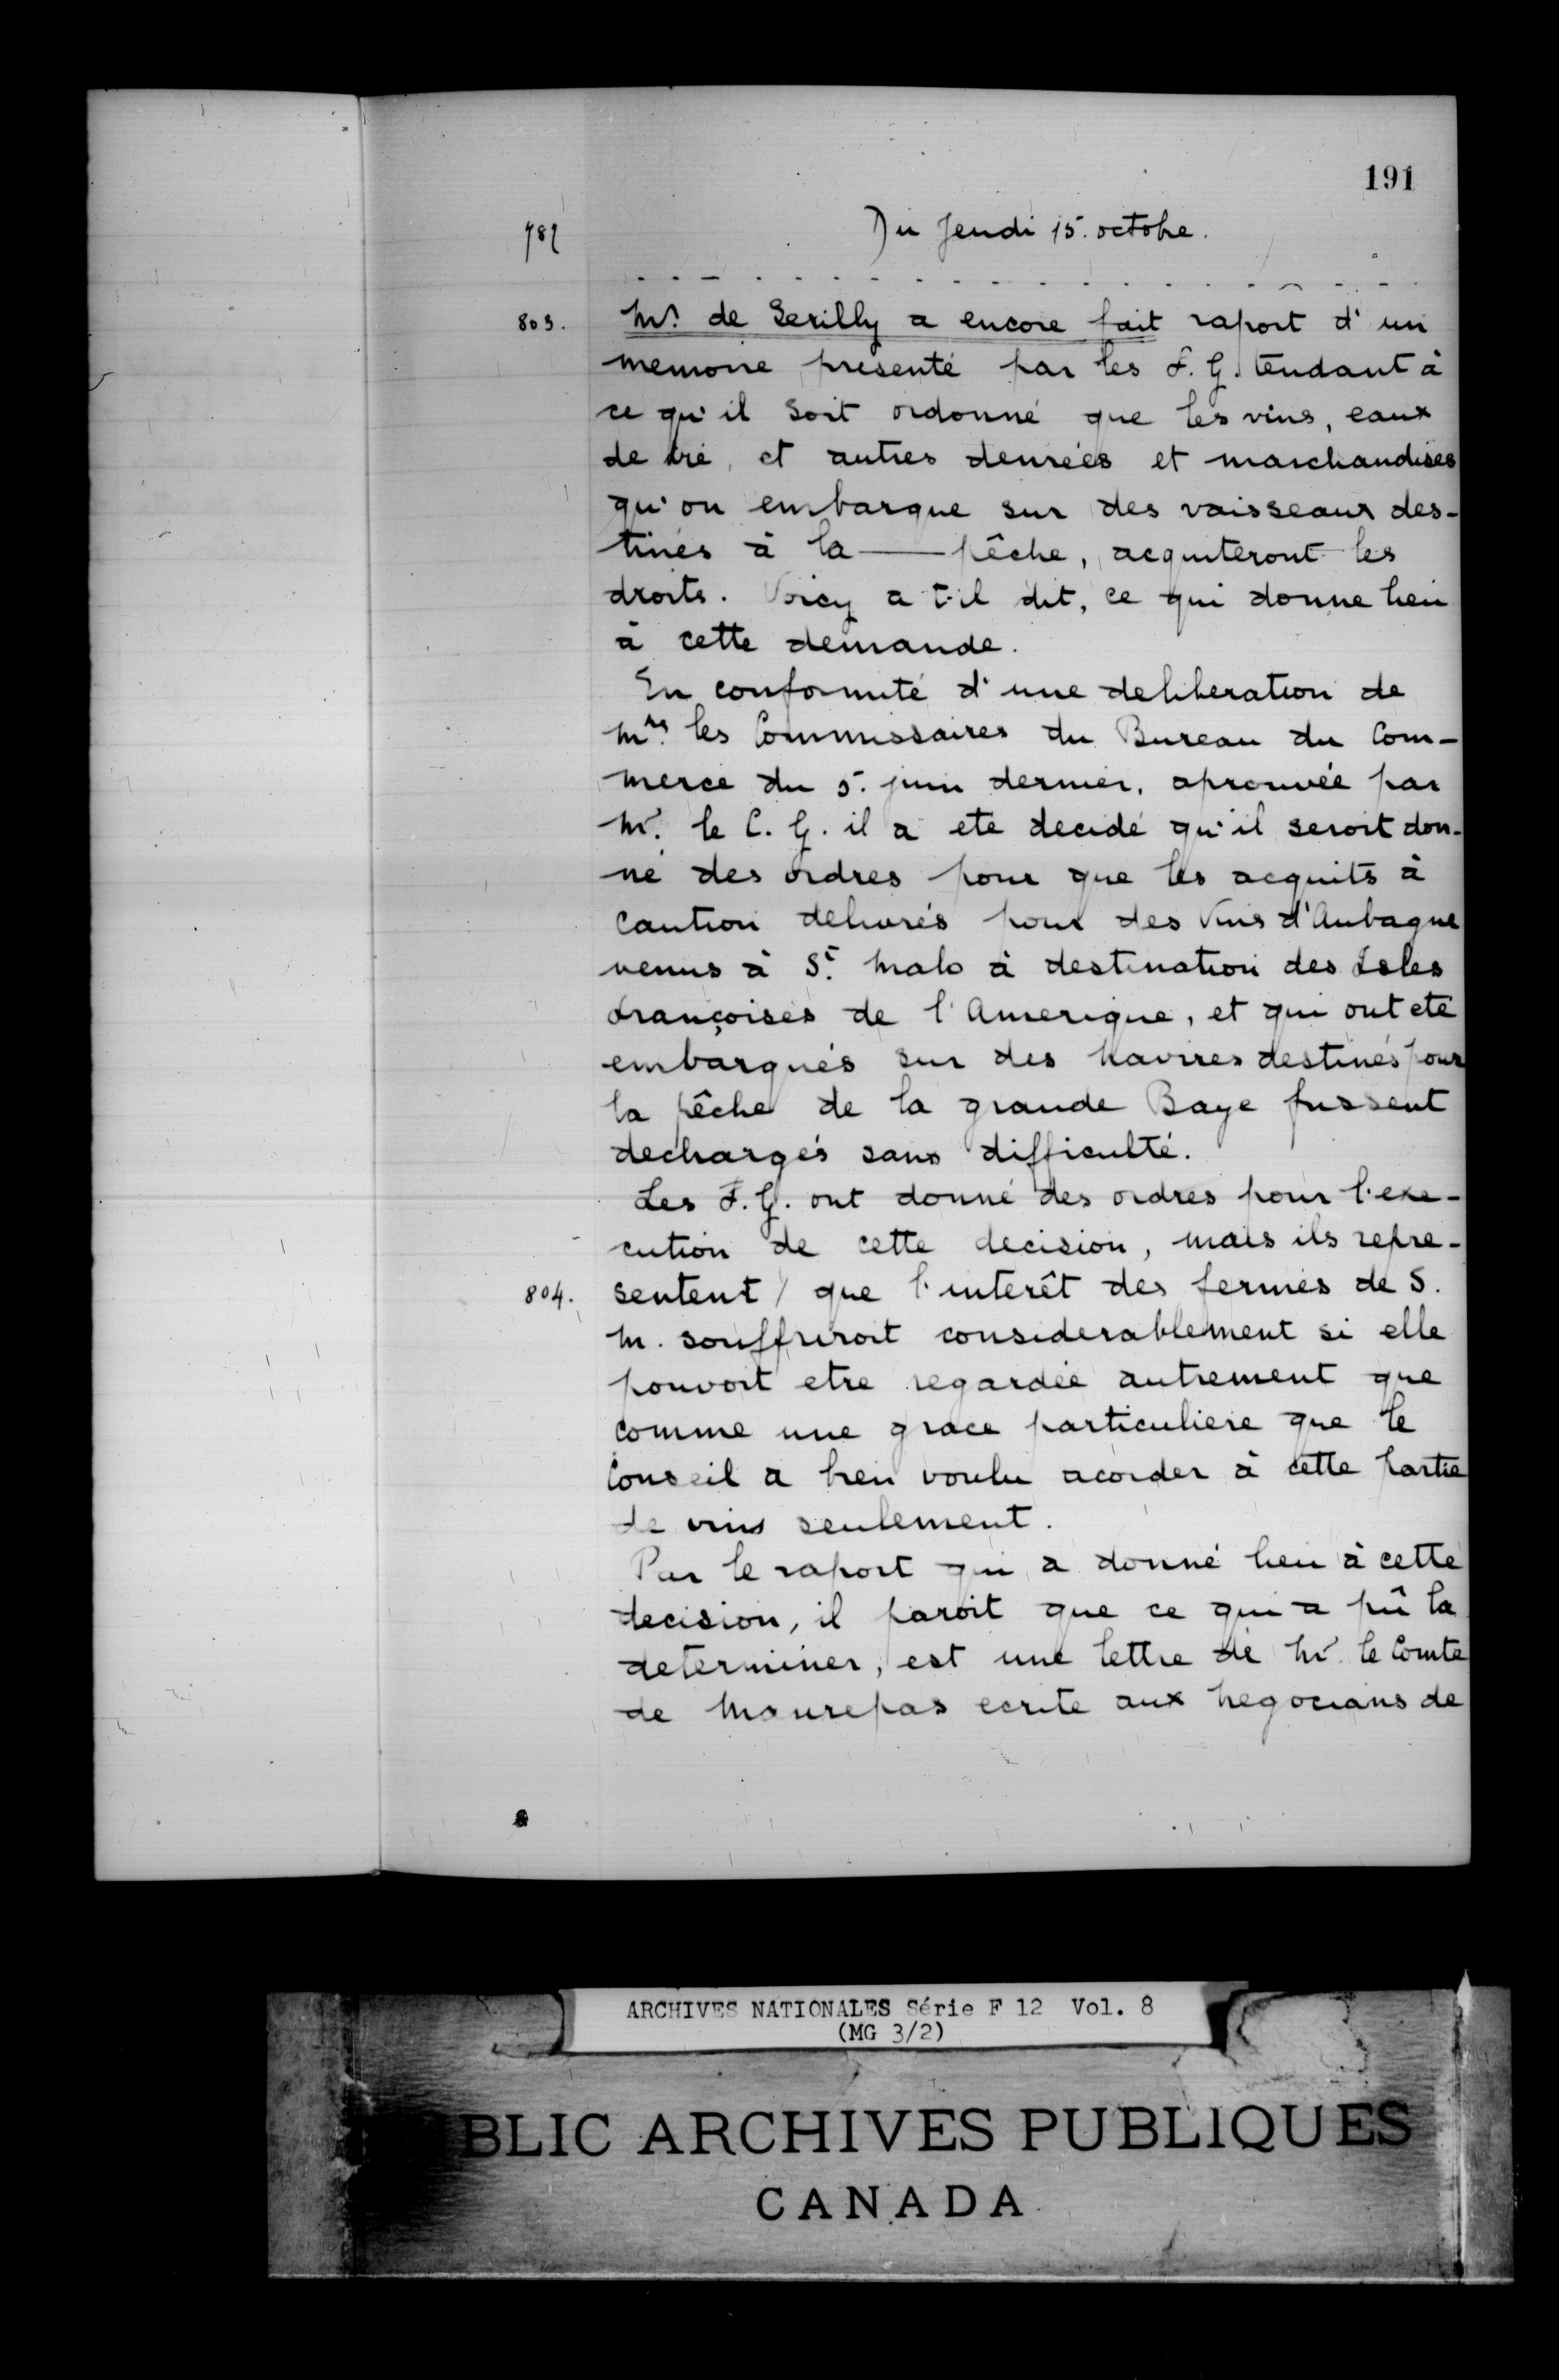 191
Du Jeudi 15. octobre.
803. Mr. de Serilly a encore fait raport d'un
memoire presenté par les F. G. tendant à
ce qu'il soit ordonné que les vins, eaux
de vie, et autres denrées et marchandises
qu'on embarque sur des vaisseaux des-
tinés à la — pêche, acquiteront les
droits. Voicy a t-il dit, ce qui donne lieu
à cette demande.
En conformité d'une deliberation de
Mrs. les Commissaires du Bureau du Com-
merce du 5. juin dernier, aprouvée par
Mr. le C. G. il a ete decidé qu'il seroit don-
né des ordres pour que les acquits à
Caution delivrés pour des Vins d'Aubagne
venus à St. Malo à destination des Isles
françoises de l'Amerique, et qui ont eté
embarqués sur des Navires destinés pour
la pêche de la grande Baye fussent
dechargés sans difficulté.
Les F. G. ont donné des ordres pour l'exe-
cution de cette decision, mais ils repre-
804. sentent / que l'interêt des fermes de S.
M. souffriroit considerablement si elle
pouvoit etre regardée autrement que
comme une grace particuliere que le
Conseil a bien voulu acorder à cette partie
de vins seulement.
Par le raport qui a donné lieu à cette
decision, il paroit que ce qui a pû la
determiner, est une lettre de Mr. le Comte
de Maurepas ecrite aux Negocians de
ARCHIVES NATIONALES Série F 12 Vol. 8
(MG 3/2)
BLIC ARCHIVES PUBLIQUES
CANADA